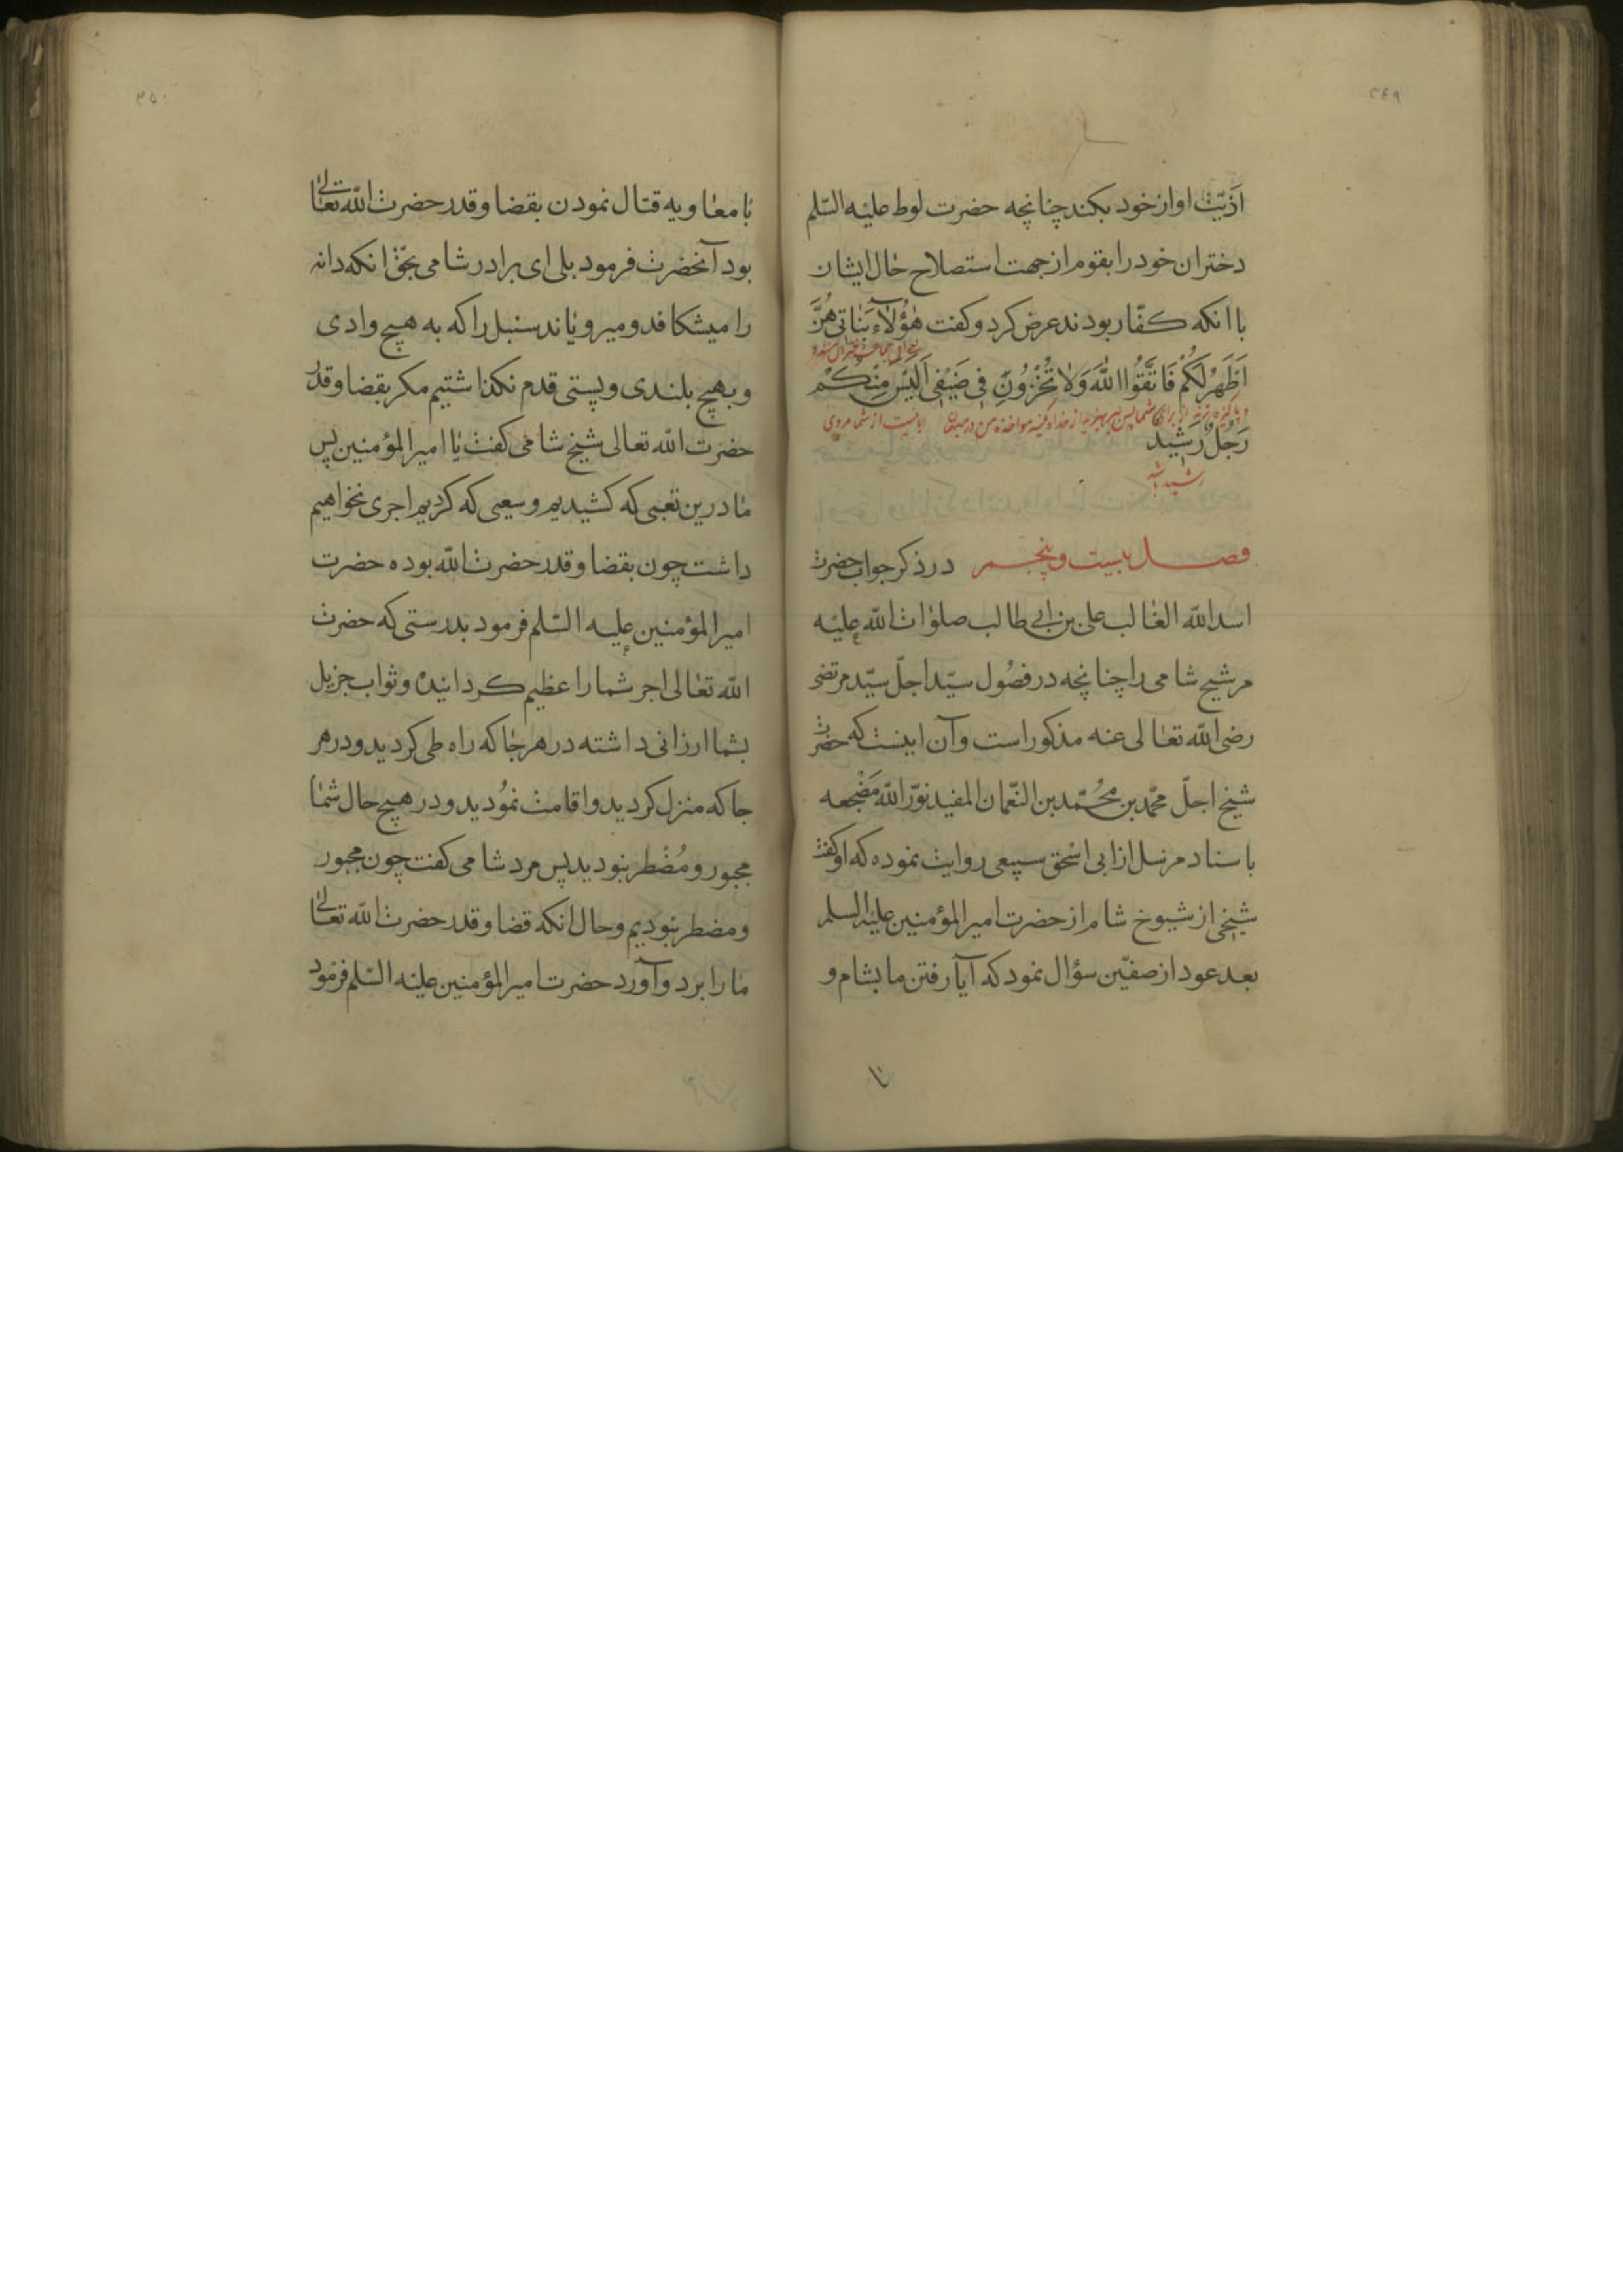 ٢٤٩
اذیّت او از خود بکند چنانچه حضرت لوط علیه السّلم
دختران خود را بقوم از جهت استصلاح حال ایشان
با انکه کفّار بودند عرض کرد و کفت هٰؤُلآءِ بَنَاتِی هُنَّ
اَطْهَرُ لَکُمْ فَاتَّقُوا اللّٰهَ وَلَا تُخْزُونِ فِی ضَیْفِی اَلَیْسَ مِنْکُمْ
از برای شما پس بپرهیزید از خدا من در ایا نیست از شما مردی
رَجُلٌ رَشِیدٌ
رشید باشد
فصل بیست و پنجم در ذکر جواب حضرت
اسد اللّٰه الغالب علی بن ابی طالب صلوات اللّٰه علیه
مر شیخ شامی را چنانچه در فصُول سیّد اجلّ سیّد مرتضی
رضی اللّٰه تعالی عنه مذکور است و آن اینست که حضرت
شیخ اجلّ محمّد بن محُمّد بن النّعمان المفید نوّر اللّٰه مَضْجعه
باسناد مرسل از ابی اسْحق سبیعی روایت نموده که او کفت
شیخی از شیوخ شام از حضرت امیر المؤمنین علیه السلم
بعد عود از صفّین سؤال نمود که آیا رفتن ما بشام و
با
٣٥٠
با معاویه قتال نمودن بقضا و قدر حضرت اللّٰه تعالی
بود آنحضرت فرمود بلی ای برادر شامی بحقّ انکه دانه
را میشکافد و میرویاند سنبل را که به هیچ وادی
و بهیچ بلندی و پستی قدم نکذاشتیم مکر بقضا و قدر
حضرت اللّٰه تعالی شیخ شامی کفت یا امیر المؤمنین پس
ما درین تعبی که کشیدیم و سعیی که کردیم اجری نخواهیم
داشت چون بقضا و قدر حضرت اللّٰه بوده حضرت
امیر المؤمنین علیه السّلم فرمود بدرستی که حضرت
اللّٰه تعالی اجر شما را عظیم کردانیده و ثواب جزیل
بشما ارزانی داشته در هر جا که راه طی کردید و در هر
جا که منزل کردید و اقامت نمُودید و در هیچ حال شما
مجبور و مُضْطر نبودید پس مرد شامی کفت چون مجبور
و مضطر نبودیم و حال انکه قضا و قدر حضرت اللّٰه تعالی
ما را برد و آورد حضرت امیر المؤمنین علیه السّلم فرمود